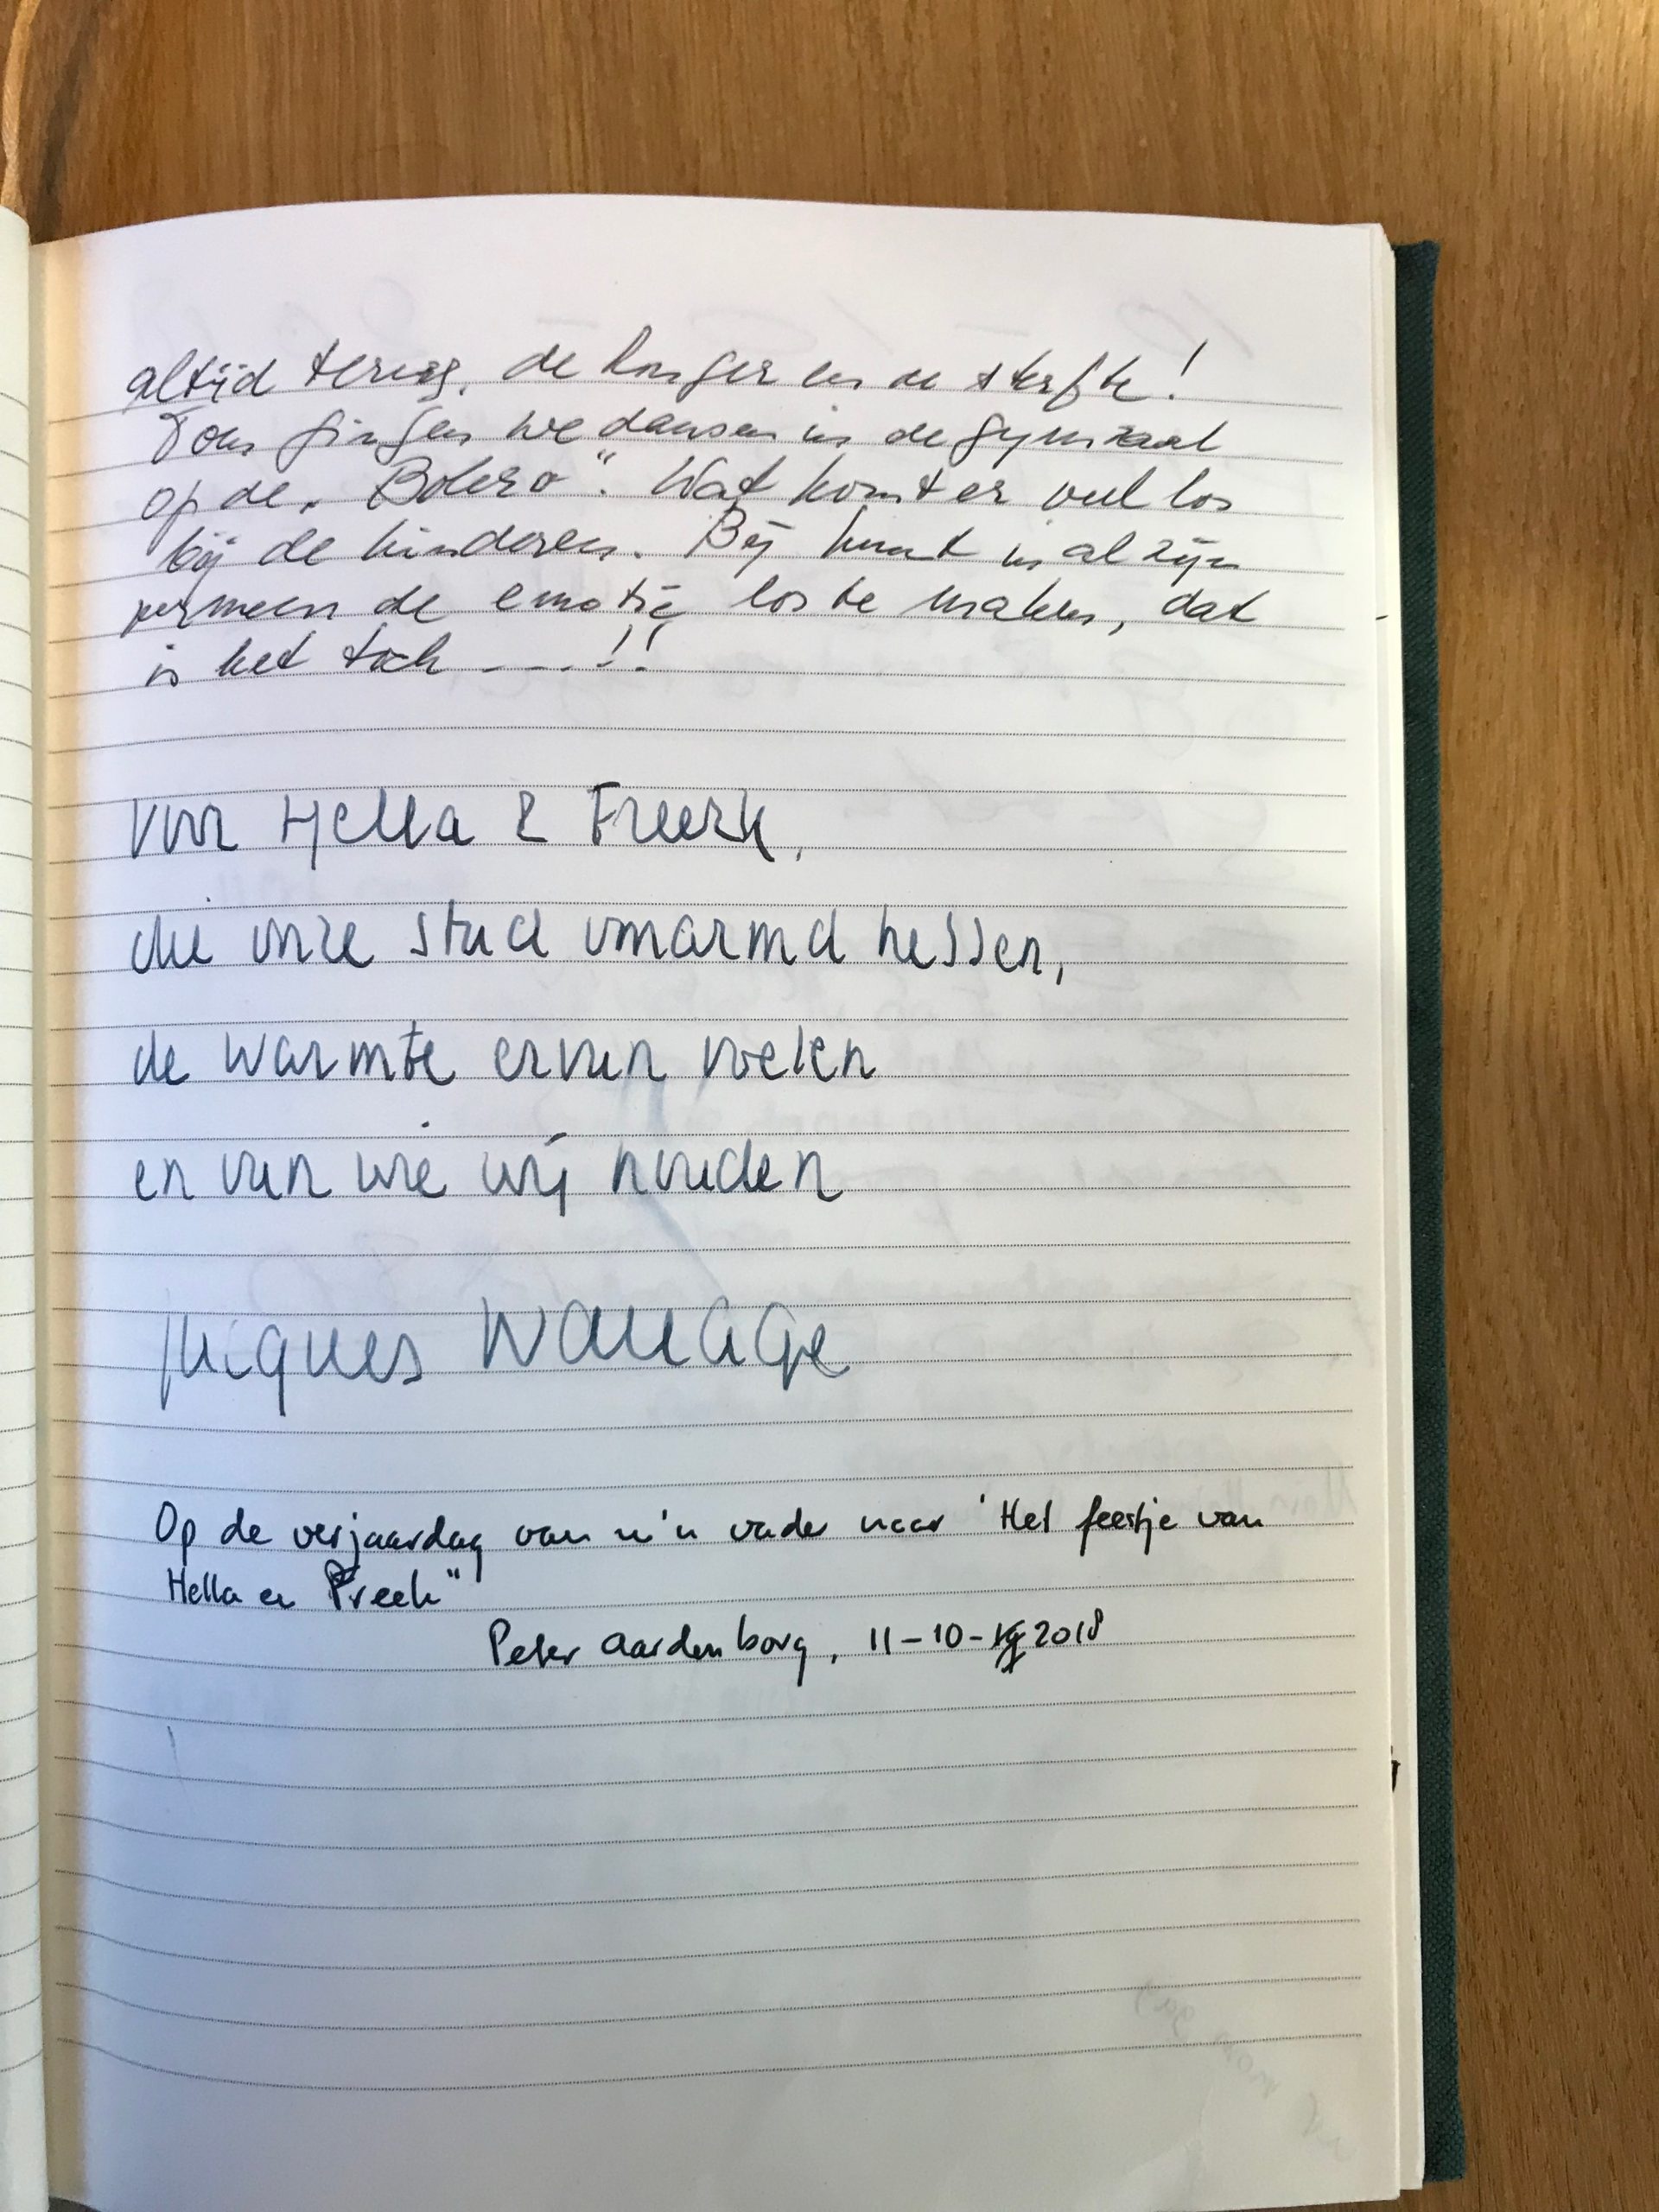 altijd terug. de honger en de sterfte!
Toen gingen we dansen in de gymzaal
op de „Bolero". Wat komt er veel los
bij de kinderen. Bij kunst is al zijn
vormen de emotie los te maken, dat
is het toch ----!!
voor Hella & Freerk,
die onze stad omarmd hebben,
de warmte ervan voelen
en van wie wij houden
Jacques Wallage
Op de verjaardag van m'n vader naar 'Het feestje van
Hella en Freek"
Peter Aardenborg, 11-10-2018